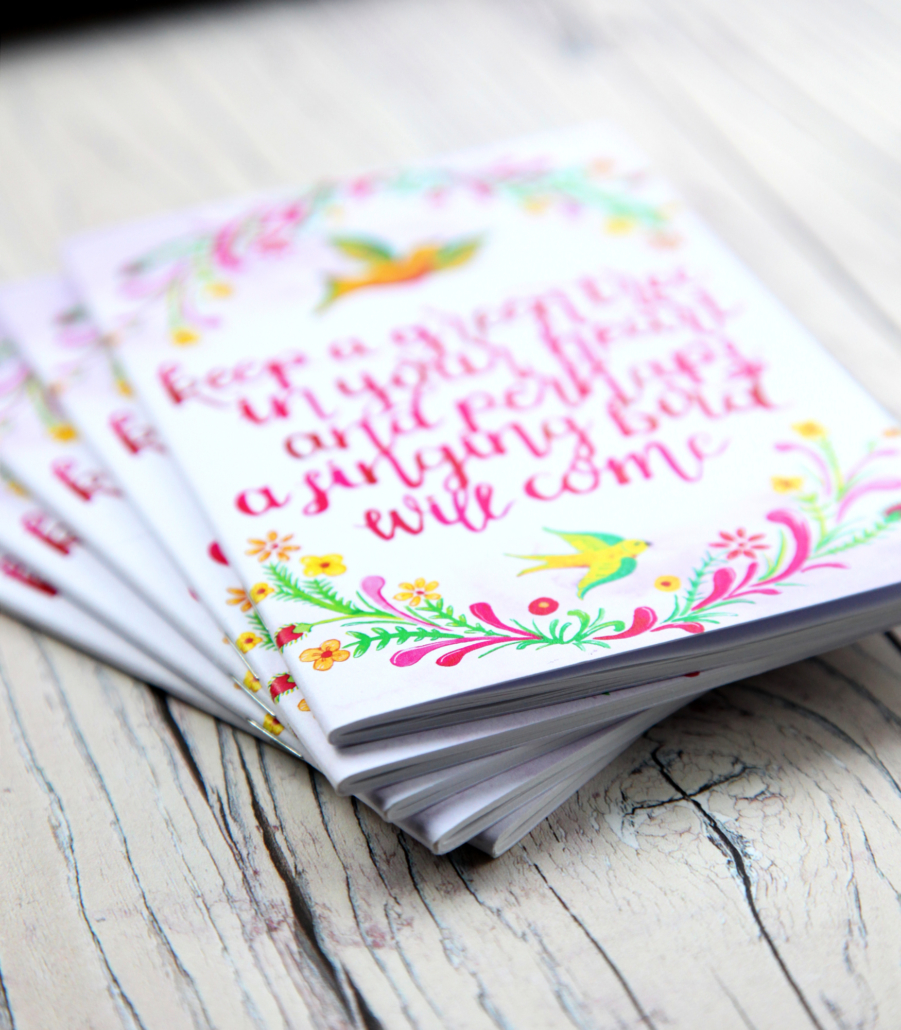 keep a green tree
in your heart
and perhaps
a singing bird
will come